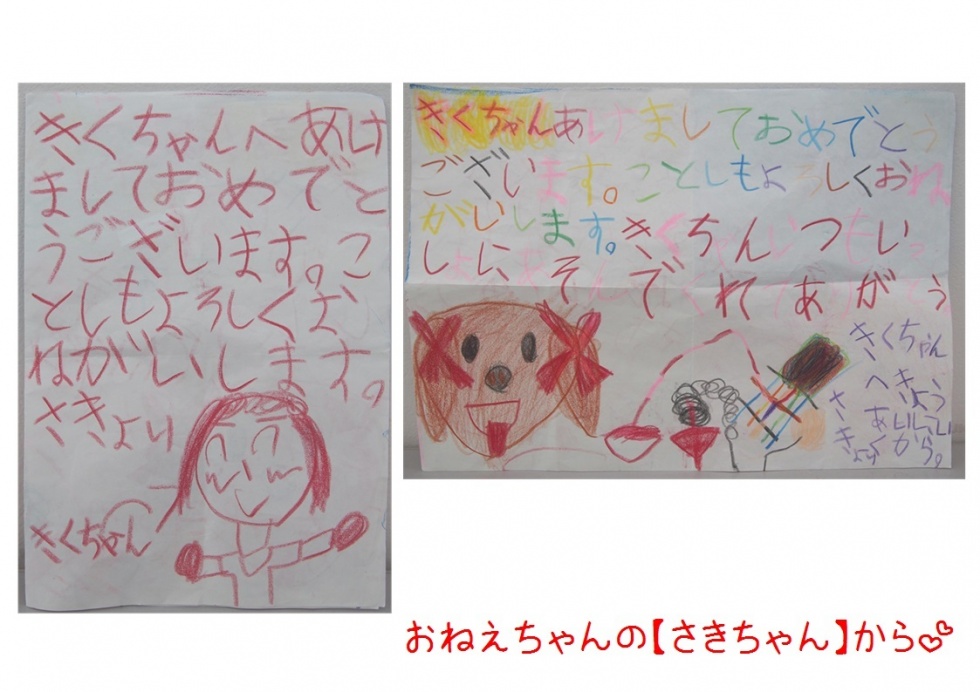 きくちゃんへあけ
ましておめでと
うございます。こ
としもよろしくお
ねがいします。
さきより
きくちゃん
きくちゃんあけましておめでとう
ございます。ことしもよろしくおね
がいします。きくちんついい
しに、そでれあがう
きくちゃん
へきょう
さきより
おねえちゃんの【さきちゃん】から